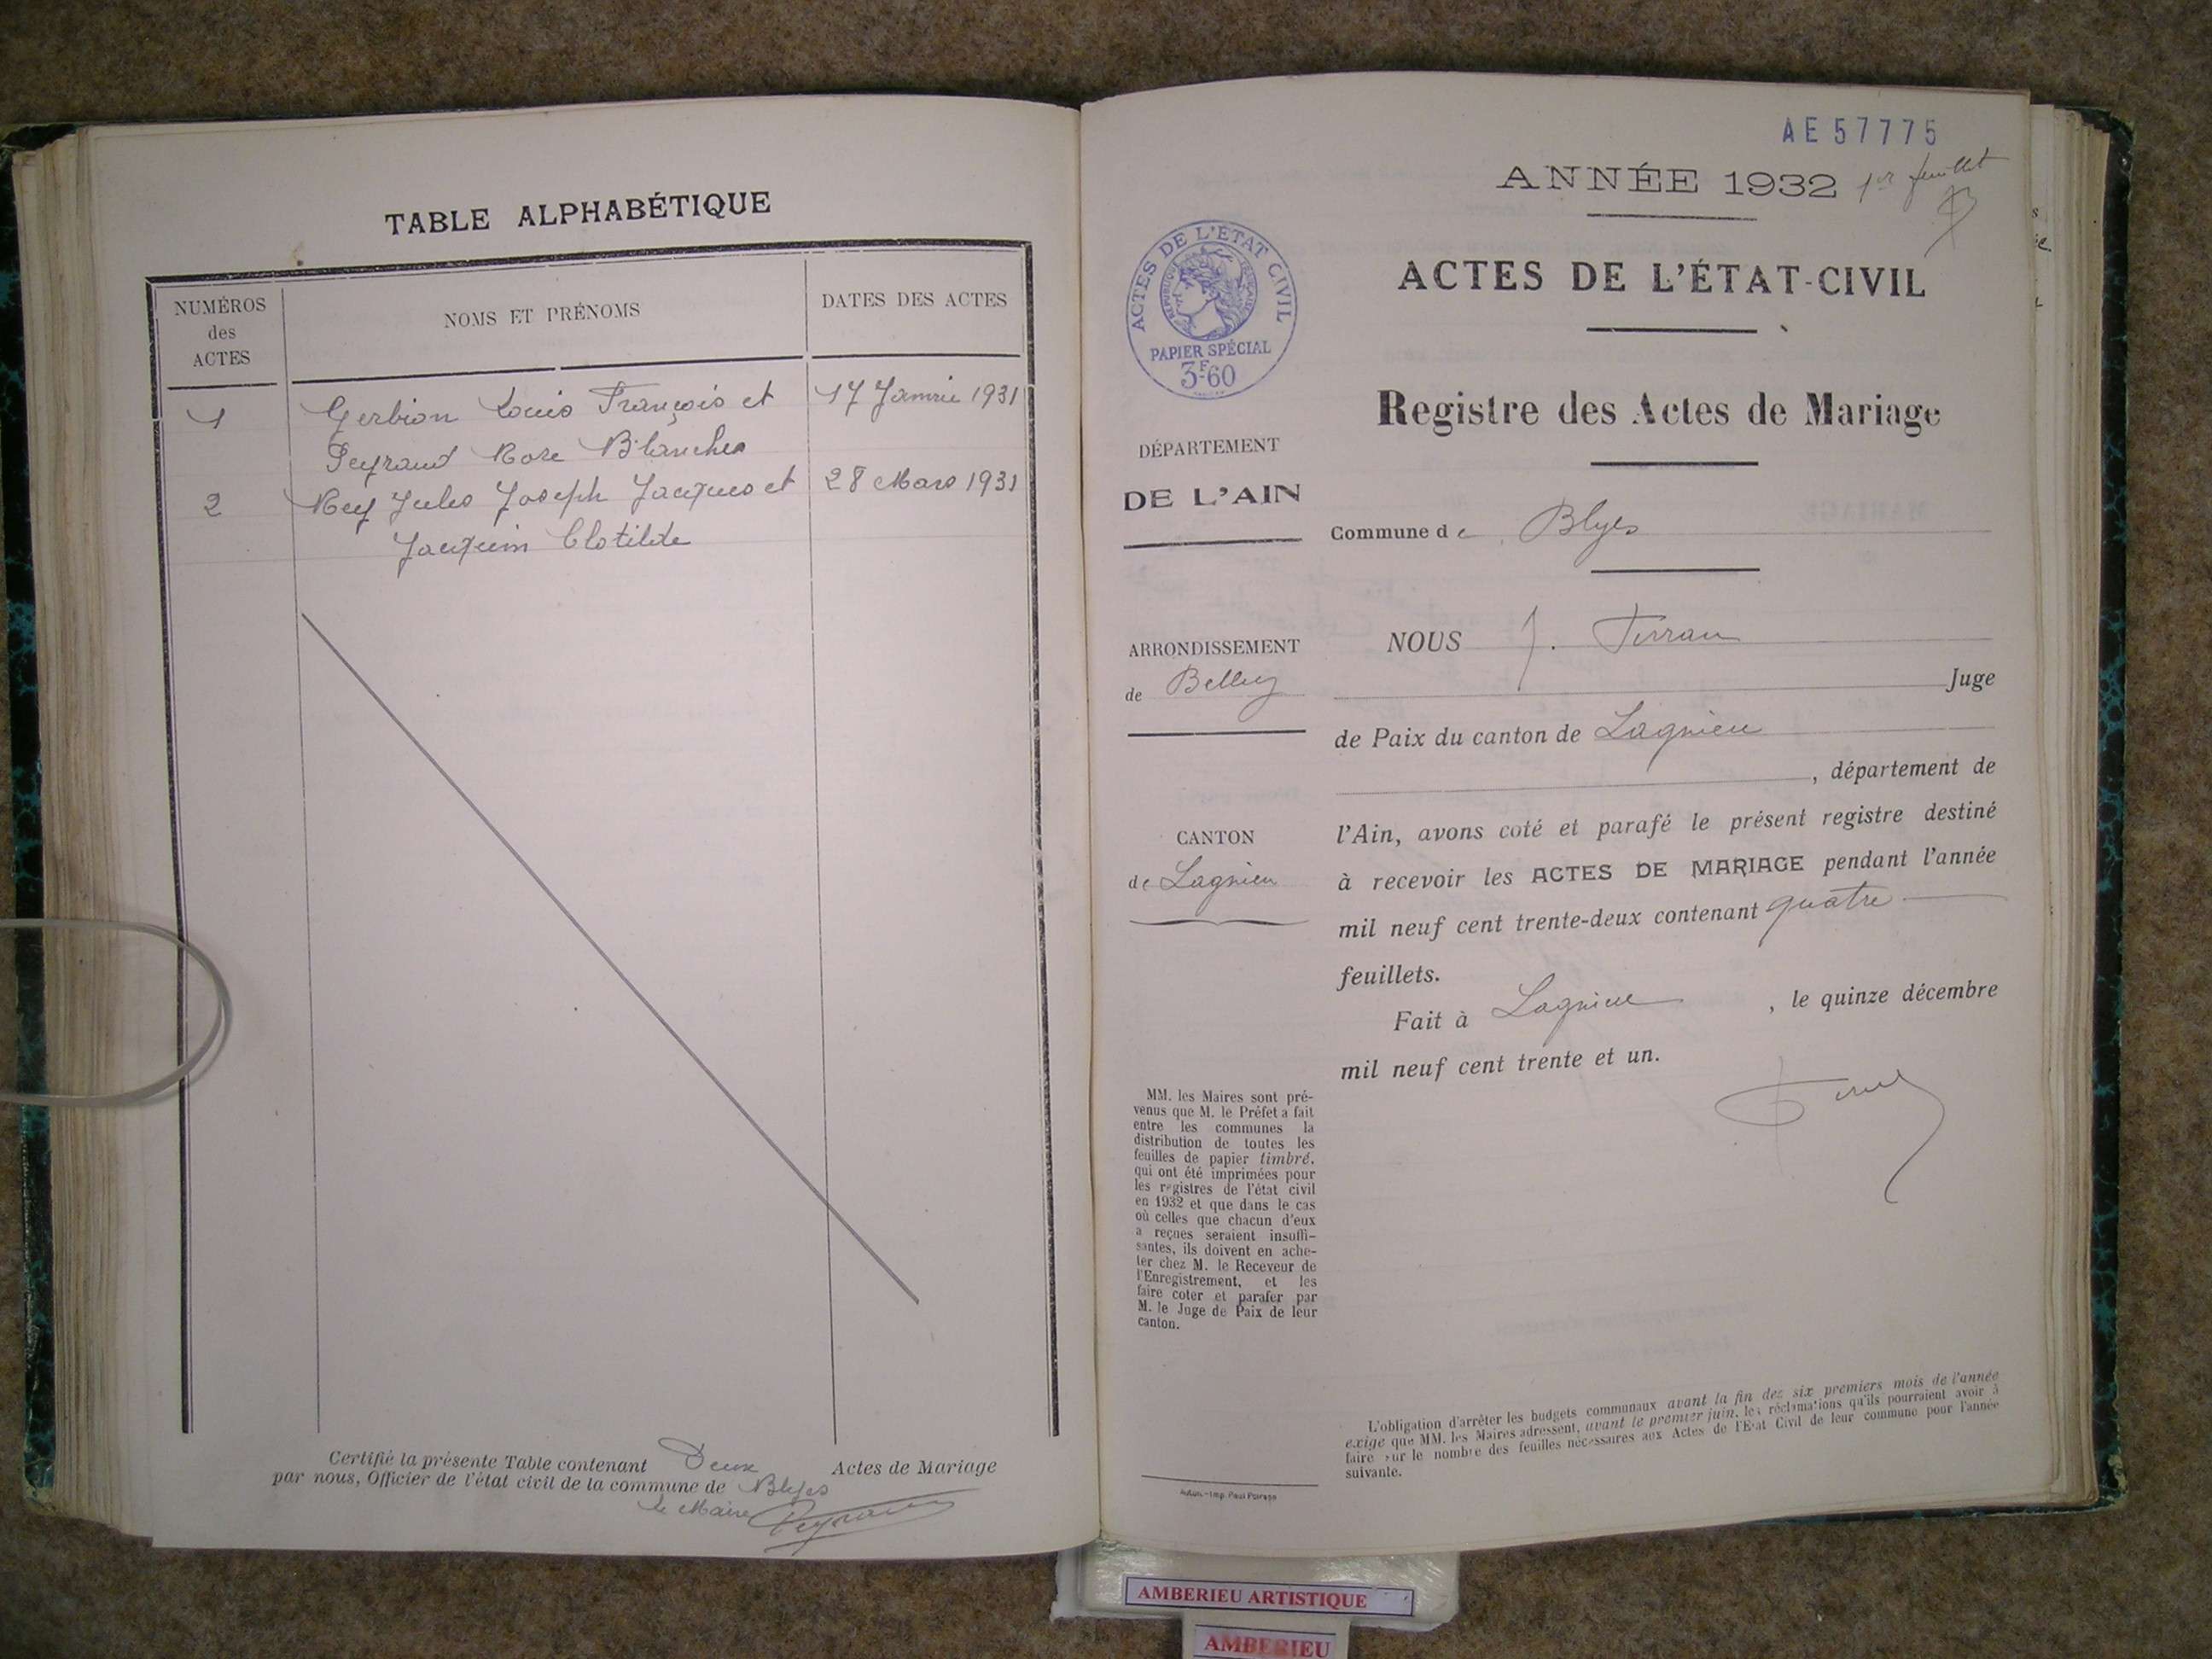 TABLE ALPHABÉTIQUE
NUMÉROS
des
ACTES
NOMS ET PRÉNOMS
DATES DES ACTES
1
Gerbion Louis François et
17 Janvier 1931
Peyraud Rose Blanche
2
Rey Jules Joseph Jacques et
28 Mars 1931
Jacquin Clotilde
Certifié la présente Table contenant Deux Actes de Mariage
par nous, Officier de l'état civil de la commune de Blyes
le Maire Peyraud
AE 57775
ANNÉE 1932 1er feuillet
ACTES DE L'ÉTAT CIVIL
RÉPUBLIQUE FRANÇAISE
PAPIER SPÉCIAL
3F60
ACTES DE L'ÉTAT-CIVIL
Registre des Actes de Mariage
DÉPARTEMENT
DE L'AIN
Commune de Blyes
ARRONDISSEMENT
de Belley
CANTON
de Lagnieu
NOUS J. Ferran
Juge
de Paix du canton de Lagnieu
, département de
l'Ain, avons coté et parafé le présent registre destiné
à recevoir les ACTES DE MARIAGE pendant l'année
mil neuf cent trente-deux contenant quatre
feuillets.
Fait à Lagnieu , le quinze décembre
mil neuf cent trente et un.
MM. les Maires sont pré-
venus que M. le Préfet a fait
entre les communes la
distribution de toutes les
feuilles de papier timbré,
qui ont été imprimées pour
les registres de l'état civil
en 1932 et que dans le cas
où celles que chacun d'eux
a reçues seraient insuffi-
santes, ils doivent en ache-
ter chez M. le Receveur de
l'Enregistrement, et les
faire coter et parafer par
M. le Juge de Paix de leur
canton.
L'obligation d'arrêter les budgets communaux avant la fin des six premiers mois de l'année
exige que MM. les Maires adressent, avant le premier juin, les réclamations qu'ils pourraient avoir à
faire sur le nombre des feuilles nécessaires aux Actes de l'Etat Civil de leur commune pour l'année
suivante.
AMBERIEU ARTISTIQUE
AMBERIEU